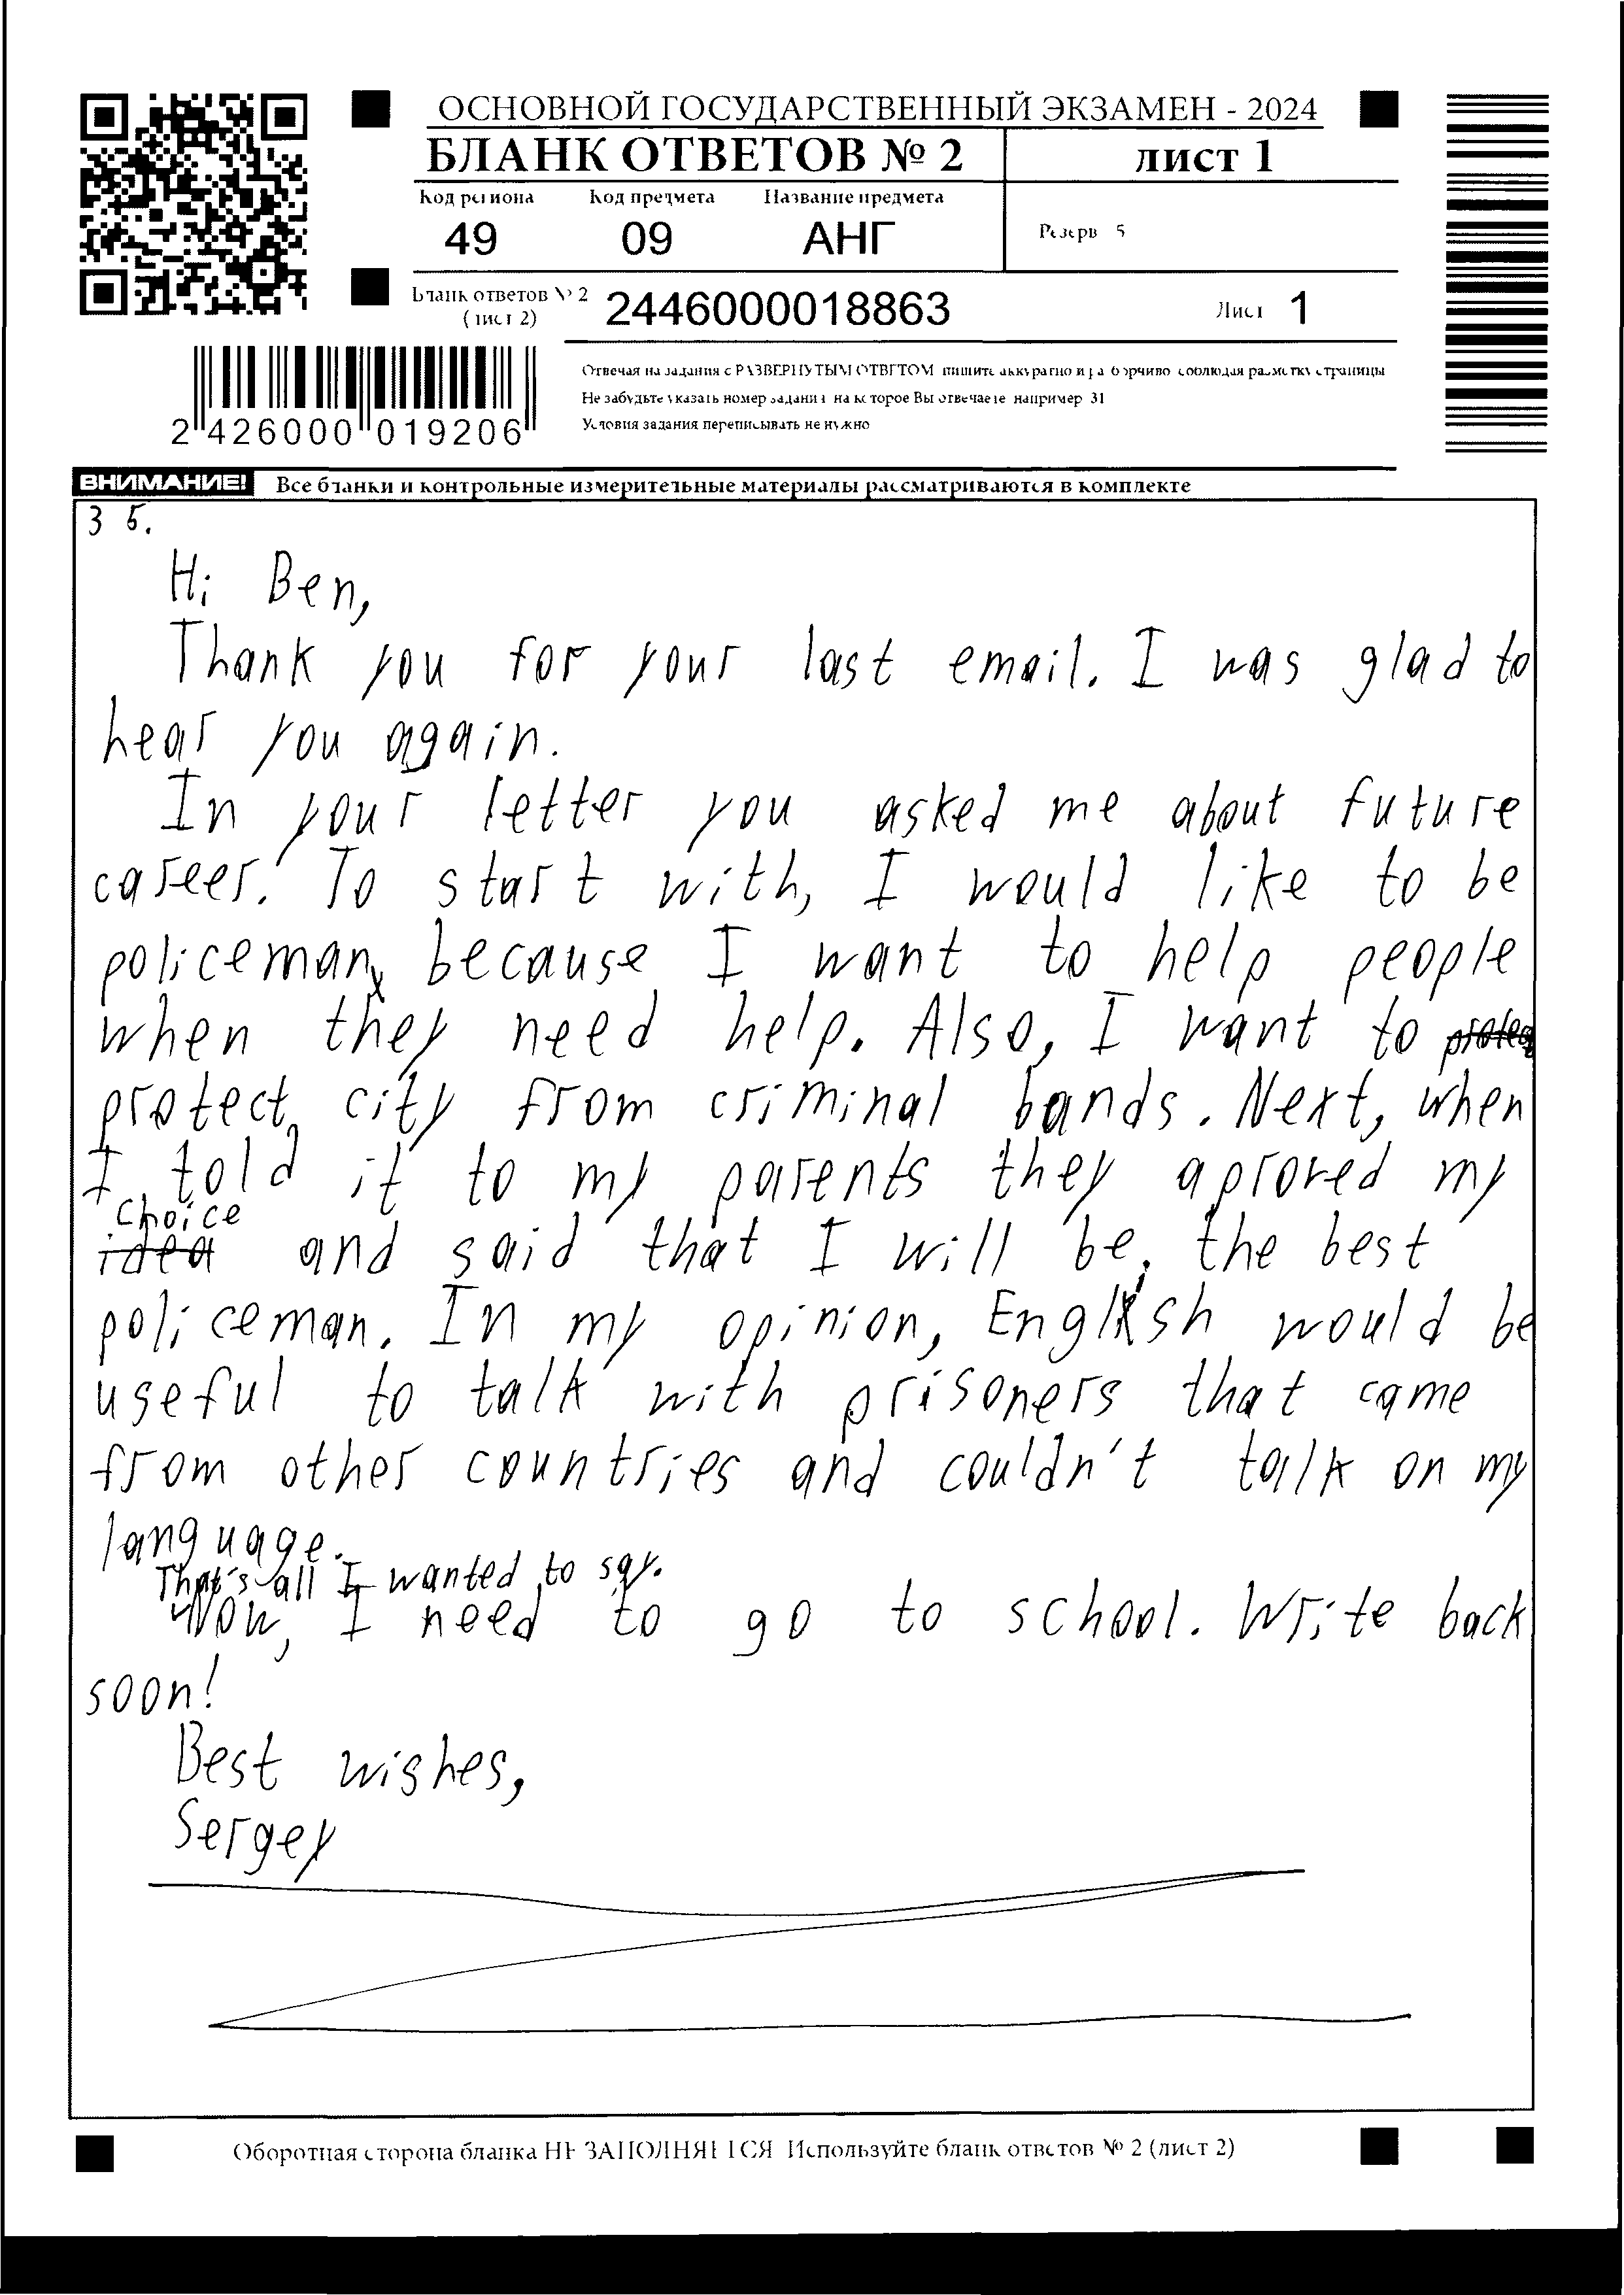 ОСНОВНОЙ ГОСУДАРСТВЕННЫЙ ЭКЗАМЕН - 2024
БЛАНК ОТВЕТОВ № 2
лист 1
Код региона
Код предмета
Название предмета
49
09
АНГ
Резерв 5
Бланк ответов № 2
(лист 2)
2446000018863
Лист 1
2 426000 019206
Отвечая на задания с РАЗВЕРНУТЫМ ОТВЕТОМ пишите аккуратно и разборчиво соблюдая разметку страницы
Не забудьте указать номер задания на которое Вы отвечаете например 31
Условия задания переписывать не нужно
ВНИМАНИЕ! Все бланки и контрольные измерительные материалы рассматриваются в комплекте
35.
Hi Ben,
Thank you for your last email. I was glad to
hear you again.
In your letter you asked me about future
career. To start with, I would like to be
policeman, because I want to help people
when they need help. Also, I want to
protect city from criminal bands. Next, when
I told it to my parents they aproved my
choice
idea and said that I will be the best
policeman. In my opinion, English would be
useful to talk with prisoners that came
from other countries and couldn't talk on my
language.
That's all I wanted to say.
Now, I need to go to school. Write back
soon!
Best wishes,
Sergey
Оборотная сторона бланка НЕ ЗАПОЛНЯЕТСЯ Используйте бланк ответов № 2 (лист 2)